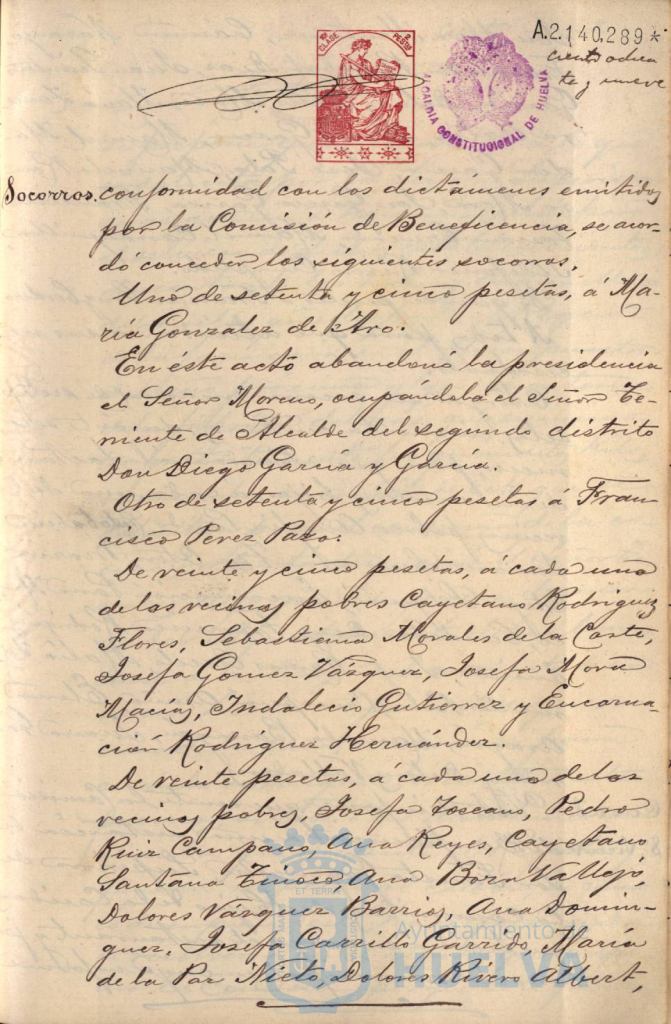 A.2.140.289*
ciento ochen
ta y nueve
CLASE PESTAS
ALCALDIA CONSTITUCIONAL DE HUELVA
Socorros. conformidad con los dictámenes emitidos
por la Comisión de Beneficencia, se acor-
dó conceder los siguientes socorros.
Uno de setenta y cinco pesetas, á Ma-
ría Gonzalez de Aro.
En éste acto abandonó la presidencia
el Señor Moreno, ocupándola el Señor Te-
niente de Alcalde del segundo distrito
Don Diego García y García.
Otro de setenta y cinco pesetas á Fran-
cisco Perez Pazo.
De veinte y cinco pesetas, á cada uno
de los vecinos pobres Cayetano Rodriguez
Flores, Sebastiana Morales de la Corte,
Josefa Gomez Vázquez, Josefa Mora
Macías, Indalecio Gutierrez y Encarna-
ción Rodriguez Hernández.
De veinte pesetas, á cada uno de los
vecinos pobres, Josefa Toscano, Pedro
Ruiz Campano, Ana Reyes, Cayetano
Santana Tinoco, Ana Vallejo,
Dolores Vázquez Barrios, Ana Domin-
guez, Josefa Carrillo Garrido, María
de la Paz Nieto, Dolores Rivero Albert,
Ayuntamiento de
HUELVA